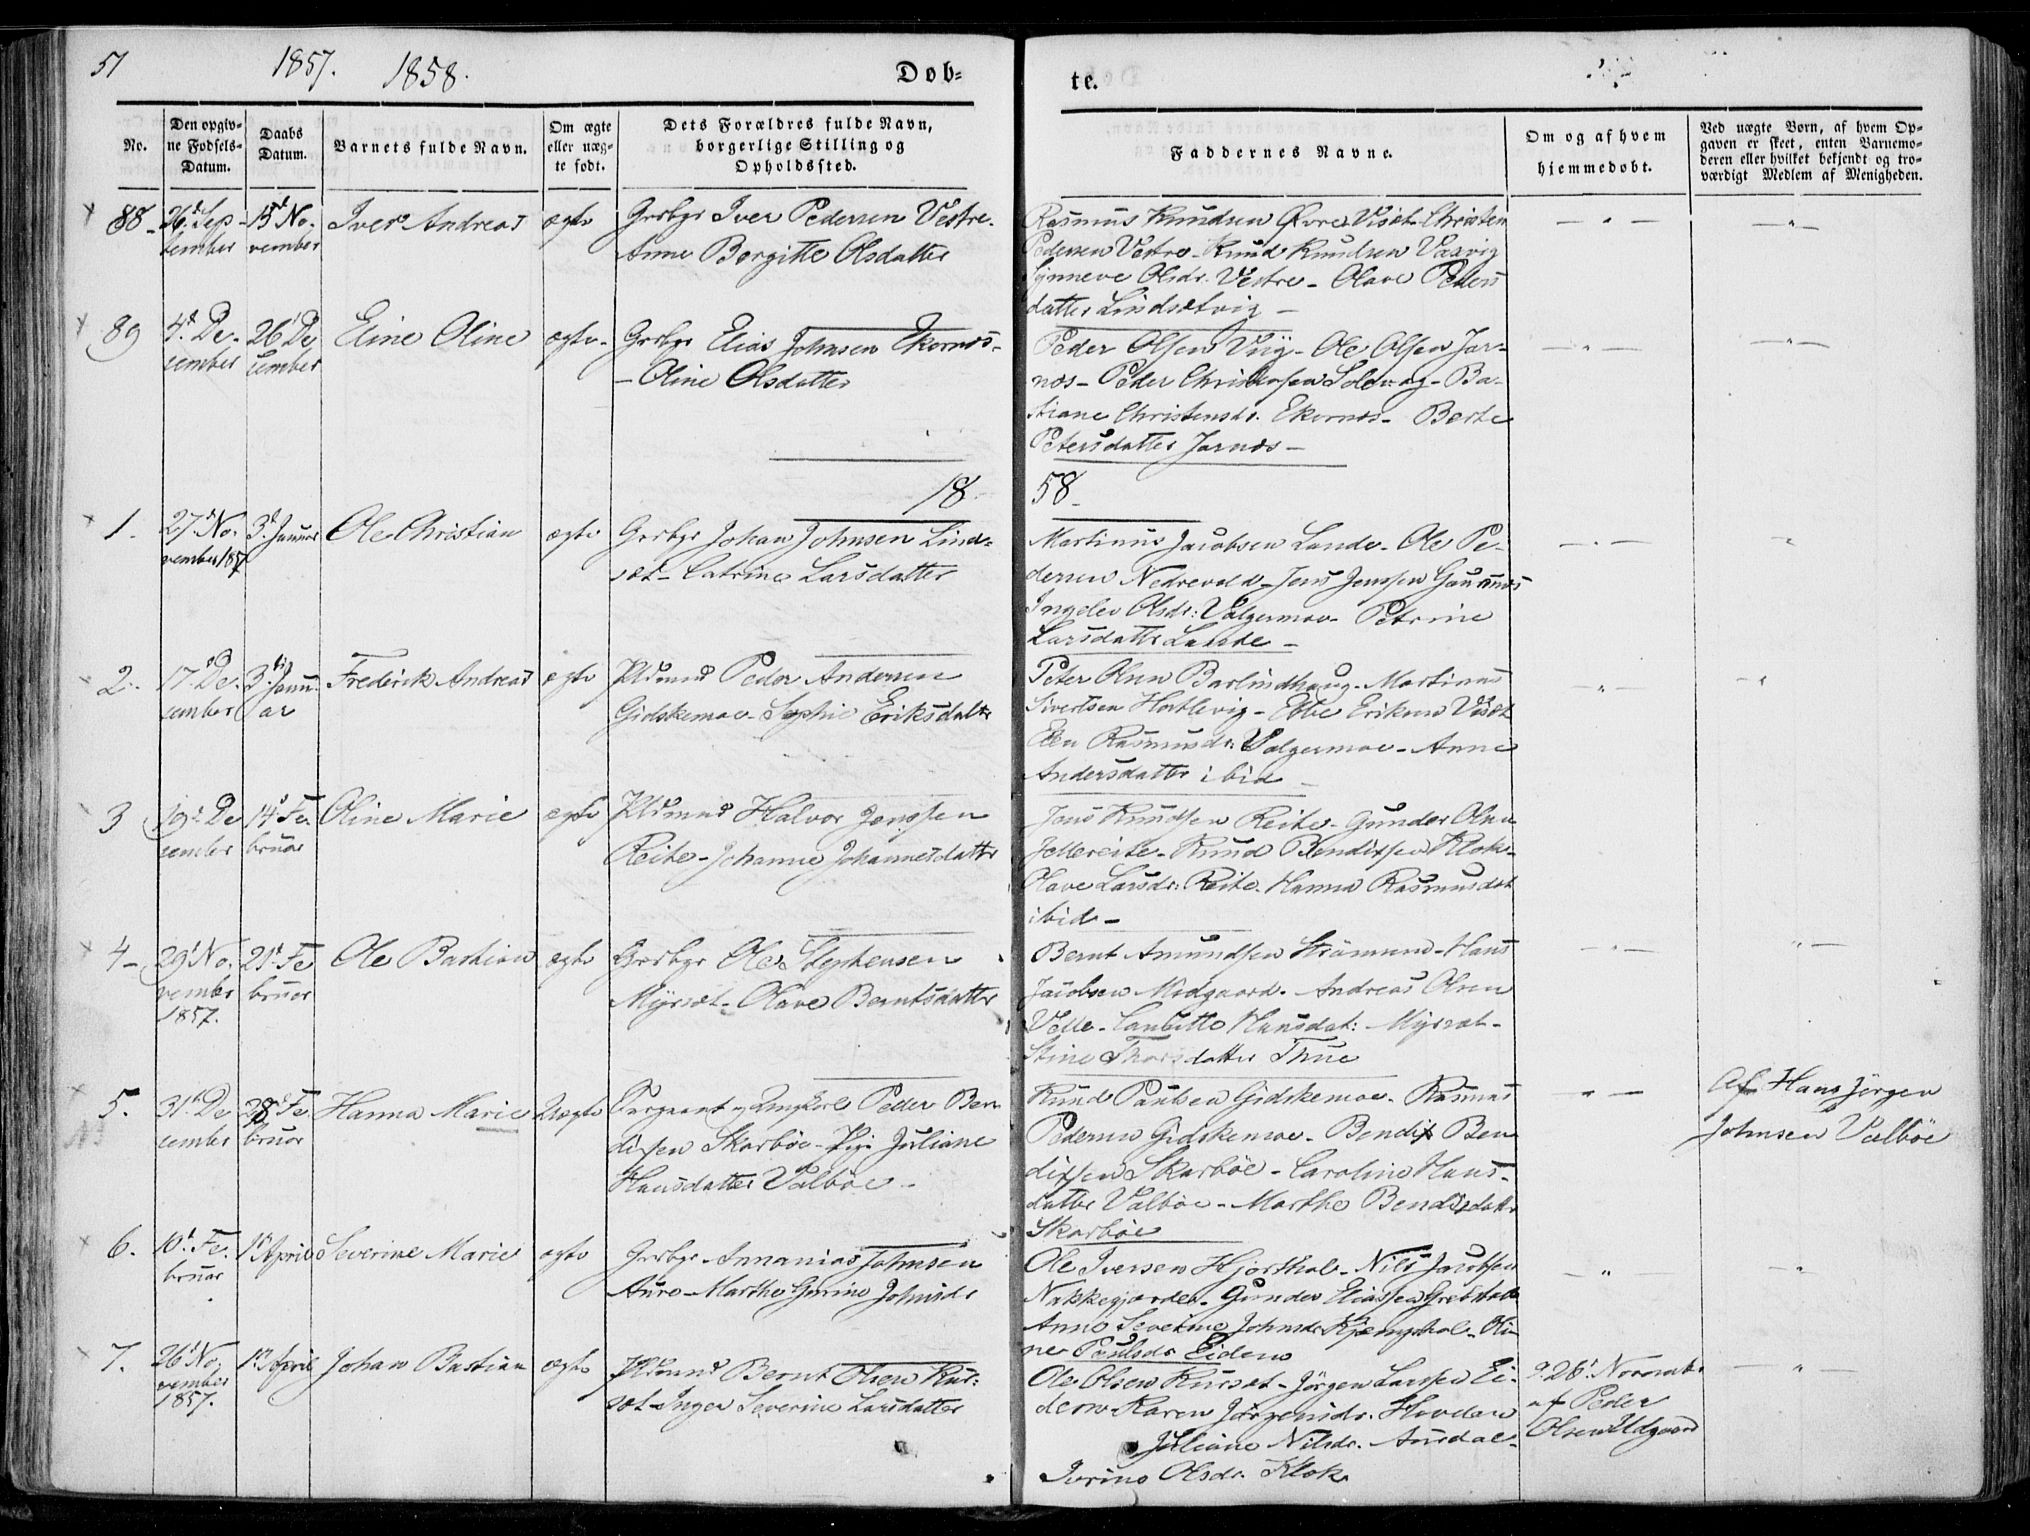 51
1857.
1858.
Døb-
te.
No.
Den opgiv-
ne Fødsels-
Datum.
Daabs
Datum.
Barnets fulde Navn.
Om ægte
eller uæg-
te født.
Dets Forældres fulde Navn,
borgerlige Stilling og
Opholdssted.
Faddernes Navne.
Om og af hvem
hjemmedøbt.
Ved uægte Børn, af hvem Op-
gaven er skeet, enten Barnemo-
deren eller hvilket bekjendt og tro-
værdigt Medlem af Menigheden.
88
26d Sep-
tember
15d No-
vember
Iver Andreas
ægte
Grbgr Iver Pedersen Vestre.
Anne Borgitte Olsdatter
Rasmus Knudsen Øvre Visæt Christen
Pedersen Vestre - Knud Knudsen Vasvig
Synneve Olsdr. Vestre - Olave Peders
datter Lindsætvig -
89
4d De-
cember
26d De
cember
Eline Oline
ægte
Grbgr Elias Johnsen Ekornes-
- Oline Olsdatter
Peder Olsen Viig - Ole Olsen Jar-
nes - Peder Christensen Solevag - Ba-
stiane Christensdr. Ekornes - Berte
Petersdatter Jarnes -
18
58
1.
27d No-
vember 1857
3d Januar
Ole Christian
ægte
Grbgr Johan Johnsen Lind-
sæt - Catrine Larsdatter
Martinus Jacobsen Lande - Ole Pe-
dersen Nedrevold - Jens Jenssen Gausnæs
Ingelev Olsdr: Valgermoe - Petrine
Larsdatter Lande -
2.
17d De-
cember
3d Janu-
ar
Frederik Andreas
ægte
Pldsmd Peder Andersen
Gidskemoe - Sophie Eriksdatr
Peter Olsen Barlindhaug - Martinus
Sivertsen Hatlevig - Ebbe Eriksen Visæt
Elen Rasmusdr. Valgermoe - Anne
Andersdatter ibid -
3
19d De
cember
14d Fe-
bruar
Oline Marie
ægte
Pldsmd Halvor Jenssen
Reite - Johanne Johannesdatter
Jens Knudsen Reite - Gunder Olsen
Jellereite - Knud Bendixsen Klok-
Olave Larsdr: Reite - Hanna Rasmusdat
ibid -
4 -
29d No-
vember
1857.
21d Fe
bruar
Ole Bastian
ægte
Grbgr Ole Stephensen
Myrsæt - Olave Berntsdatter
Bernt Amundsen Strømmen - Hans
Jacobsen Midgaard - Andreas Olsen
Velle - Hansdat: Myrsæt -
Stine datter Thue
5.
31d De
cember
28d Fe
bruar
Hanna Marie
Uægte
Sergeant og Ungkarl Peder Ben
dixsen Skarbøe - Pige Juliane
Hansdatter Valbøe -
Knud Paulsen Gidskemoe - Rasmus
Pedersen Gidskemoe - Bendix Ben
dixsen Skarbøe - Caroline Hans-
datter Valbøe - Marthe Bendixdatter
Skarbøe
Af Hans Jørgen
Johnsen Valbøe
6.
10d Fe-
bruar
1d April
Severine Marie
ægte
Grbgr Annanias Johnsen
Aure - Marthe Gurine Johnsdr
Ole Iversen Hjorthol - Nils Jacobsen
Nakkegjerde - Gunder Eliassen Grebstad
Anne Severine Johnsdr Kjempehol - Oli
ne Paulsdr Eidem
7.
26d No-
vember
1857.
1d April
Johan Bastian
ægte
Pldsmd Bernt Olsen Kur-
sæt - Inger Severine Larsdatter
Ole Olsen Kursæt - Jørgen Larssen Ei-
dem - Karen Jørgensdr. Hovden
Juliane Nilsdr. Aursdal -
Iverine Olsdr. Klok
d. 26d Novembr
af Peder
Olsen Udgaard